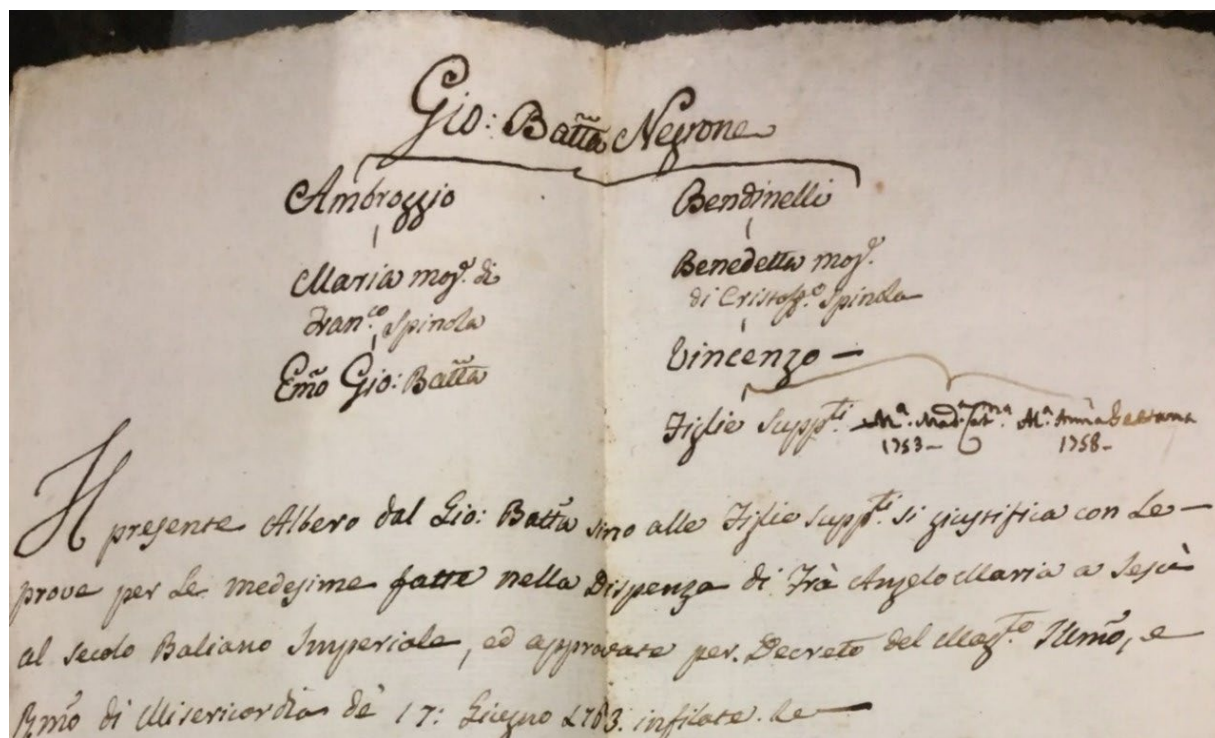 Gio: Batta Negrone
Ambroggio Bendinelli
Maria mog.e di Benedetta mog.e
Fran.co Spinola di Cristoff.o Spinola
Emõ Gio: Batta Vincenzo –
Figlie Supp.ti M.a Mad.a Cat.na M.a Anna
1753– 1758–
Il presente Albero dal Gio: Batta sino alle Figlie supp.ti si giustifica con Le–
prove per Le medesime fatte nella Dispenza di Frà Angelo Maria a Jesù
al secolo Baliano Imperiale, ed approvate per Decreto del Mag.to Illmõ, e
Rmõ di Misericordia de' 17: Giugno 1763. infilate. Le